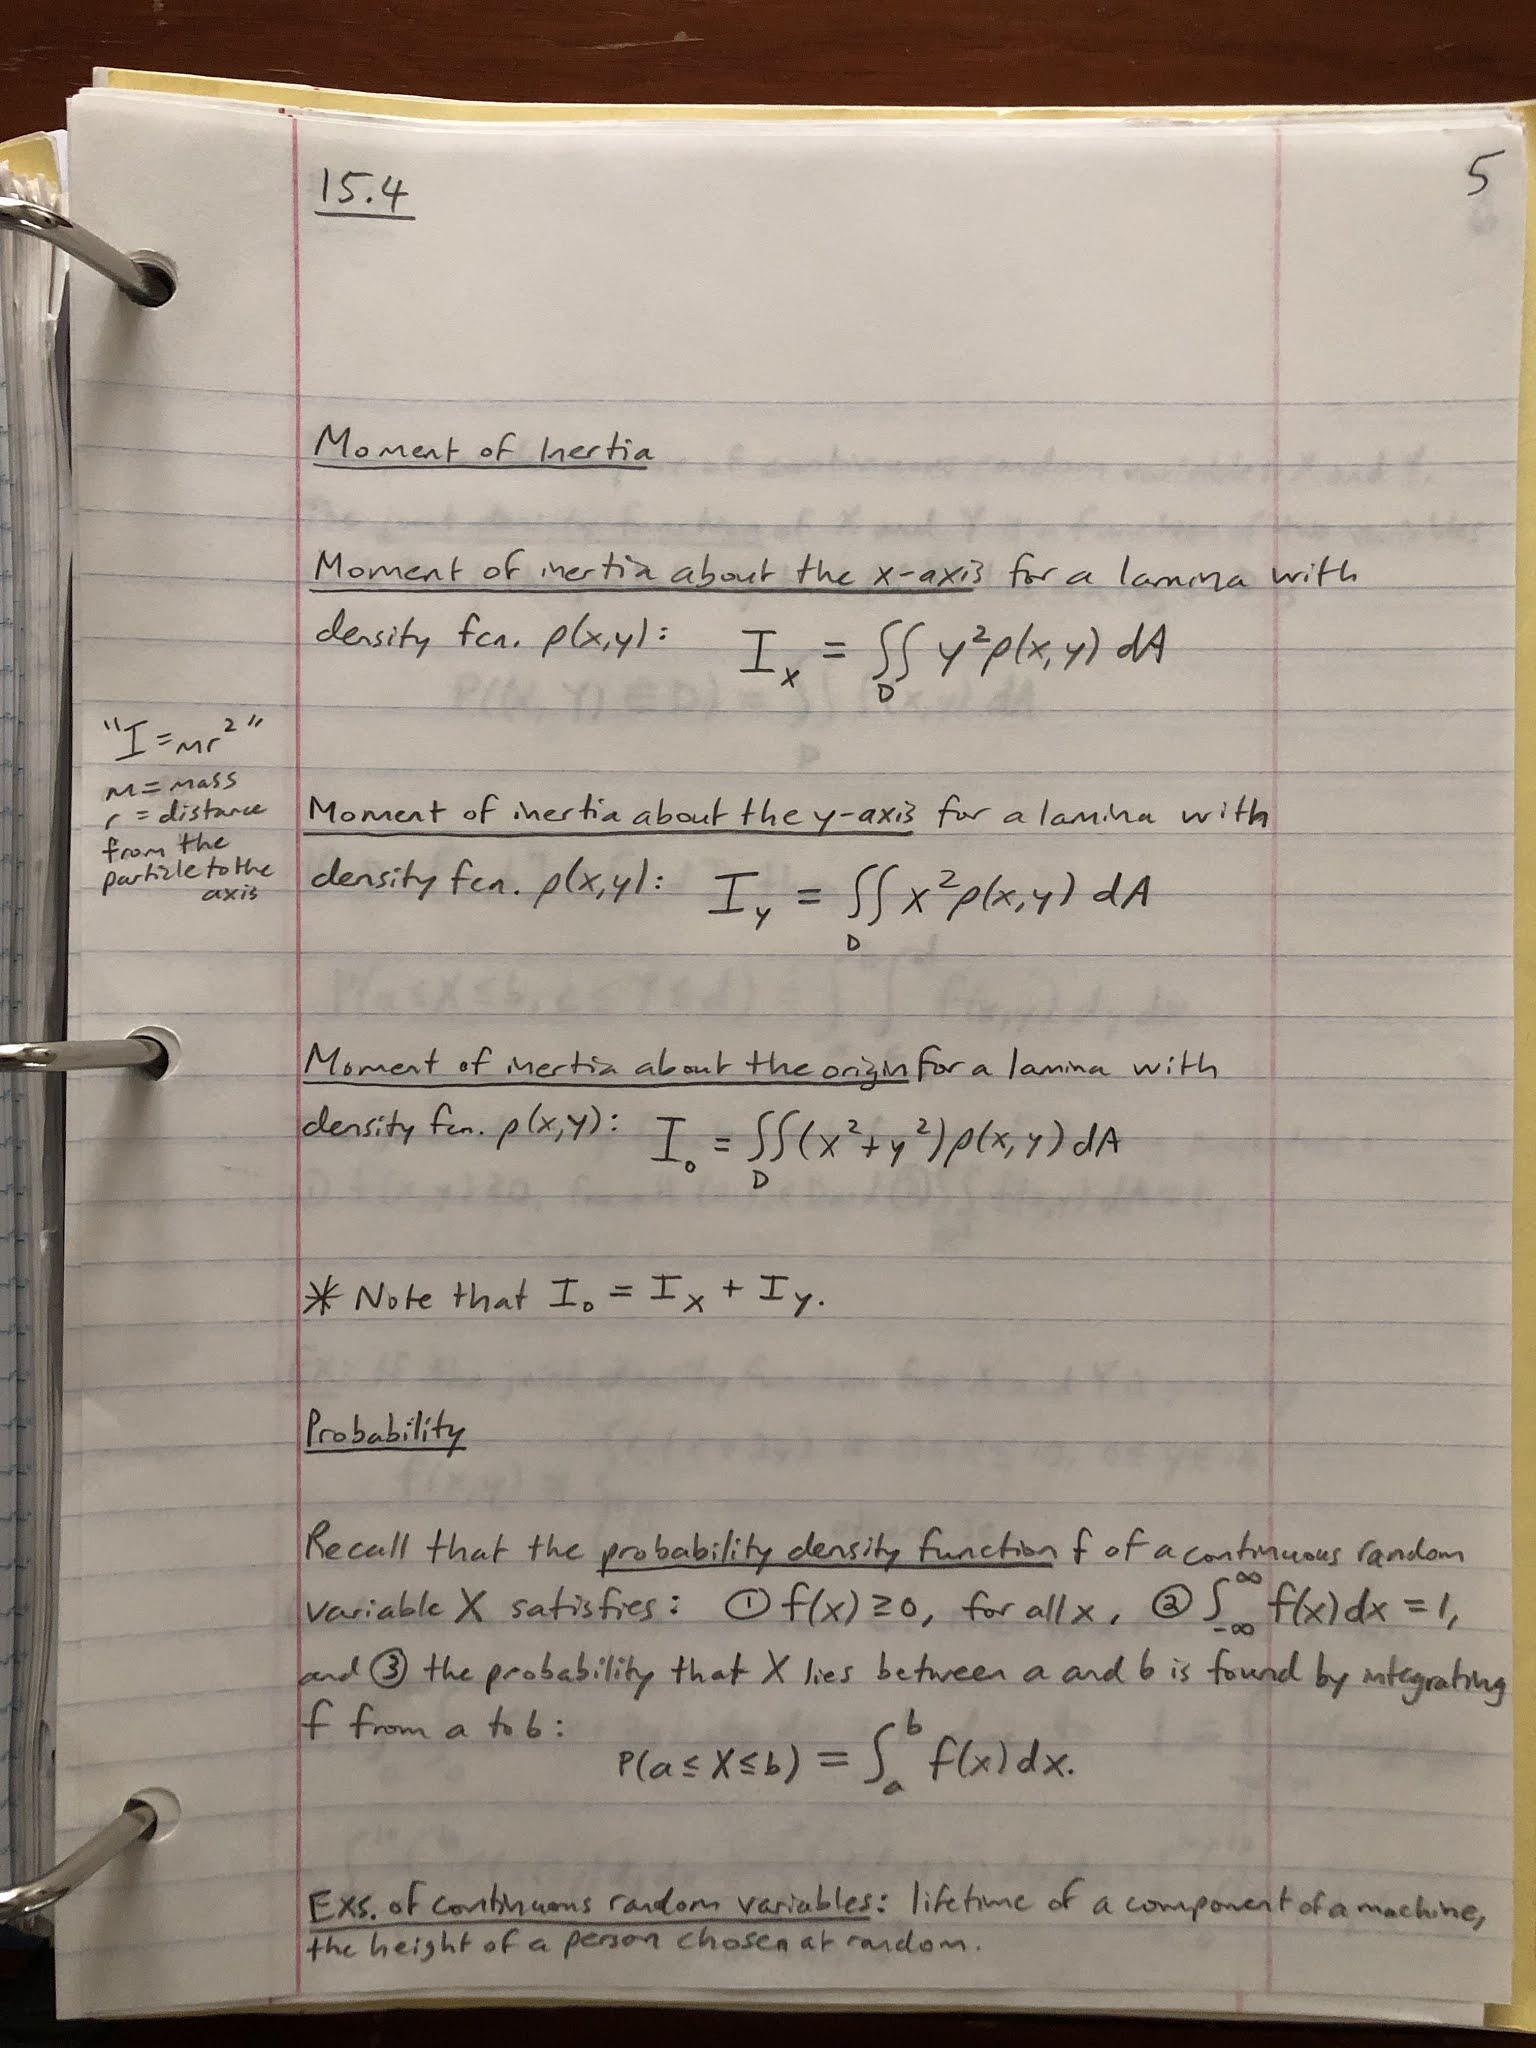 15.4
5
Moment of Inertia
Moment of inertia about the x-axis for a lamina with
density fcn. ρ(x,y): I_x = ∬_D y²ρ(x,y) dA
"I=mr²"
m=mass
r=distance
from the
particle to the
axis
Moment of inertia about the y-axis for a lamina with
density fcn. ρ(x,y): I_y = ∬_D x²ρ(x,y) dA
Moment of inertia about the origin for a lamina with
density fcn. ρ(x,y): I_o = ∬_D (x²+y²)ρ(x,y) dA
* Note that I_o = I_x + I_y.
Probability
Recall that the probability density function f of a continuous random
variable X satisfies: ① f(x) ≥ 0, for all x, ② ∫_{-∞}^{∞} f(x) dx = 1,
and ③ the probability that X lies between a and b is found by integrating
f from a to b:
P(a ≤ X ≤ b) = ∫_a^b f(x) dx.
Exs. of continuous random variables: lifetime of a component of a machine,
the height of a person chosen at random.